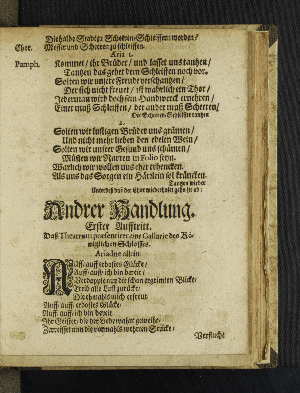 Die halbe Stadt zu Schewin-Schleiffen worden/
Chor. Messer und Scheren zu schleiffen.
Aria 1.
Pamph. Kommet/ ihr Brüder/ und lasset uns tantzen/
Tantzen das gehet dem Schleiffen noch vor.
Solten wir unsre Freude verschantzen/
Der sich nicht freuet/ ist warlich ein Thor/
Jederman wird doch sein Handwerck ernehren/
Einer muß Schleiffen/ der ander muß Scheren/
Die Scheren-Schleiffer tantzen
2.
Solten wir lustigen Brüder uns grämen/
Und nicht mehr lieben den edelen Wein/
Solten wir unser Gesund uns schämen/
Müsten wir Narren in Folio seyn.
Warlich wir wollen uns eher
Als uns das Sorgen ein Härlein sol kräncken.
Tantzen wieder
Unterdeß daß der Chor wiederholet gehn sie ab:
Andrer Handlung.
Erster Aufftritt.
Das Theatrum præsentiret eine Gallerie des Kö-
niglichen Schlosses.
Ariadne allein.
Auff/ auff erbostes Glücke/
Auff/ auff/ ich bin bereit/
Verdopple nur die schon ergrimten Blicke/
Treib alle Lust zurücke/
Die ehmahls mich erfreut.
Auff/ auff/ erbostes Glücke/
Auff/ auff/ ich bin bereit
Ihr Geister/ die der
Zerreisset nun die vormahls
Verflucht